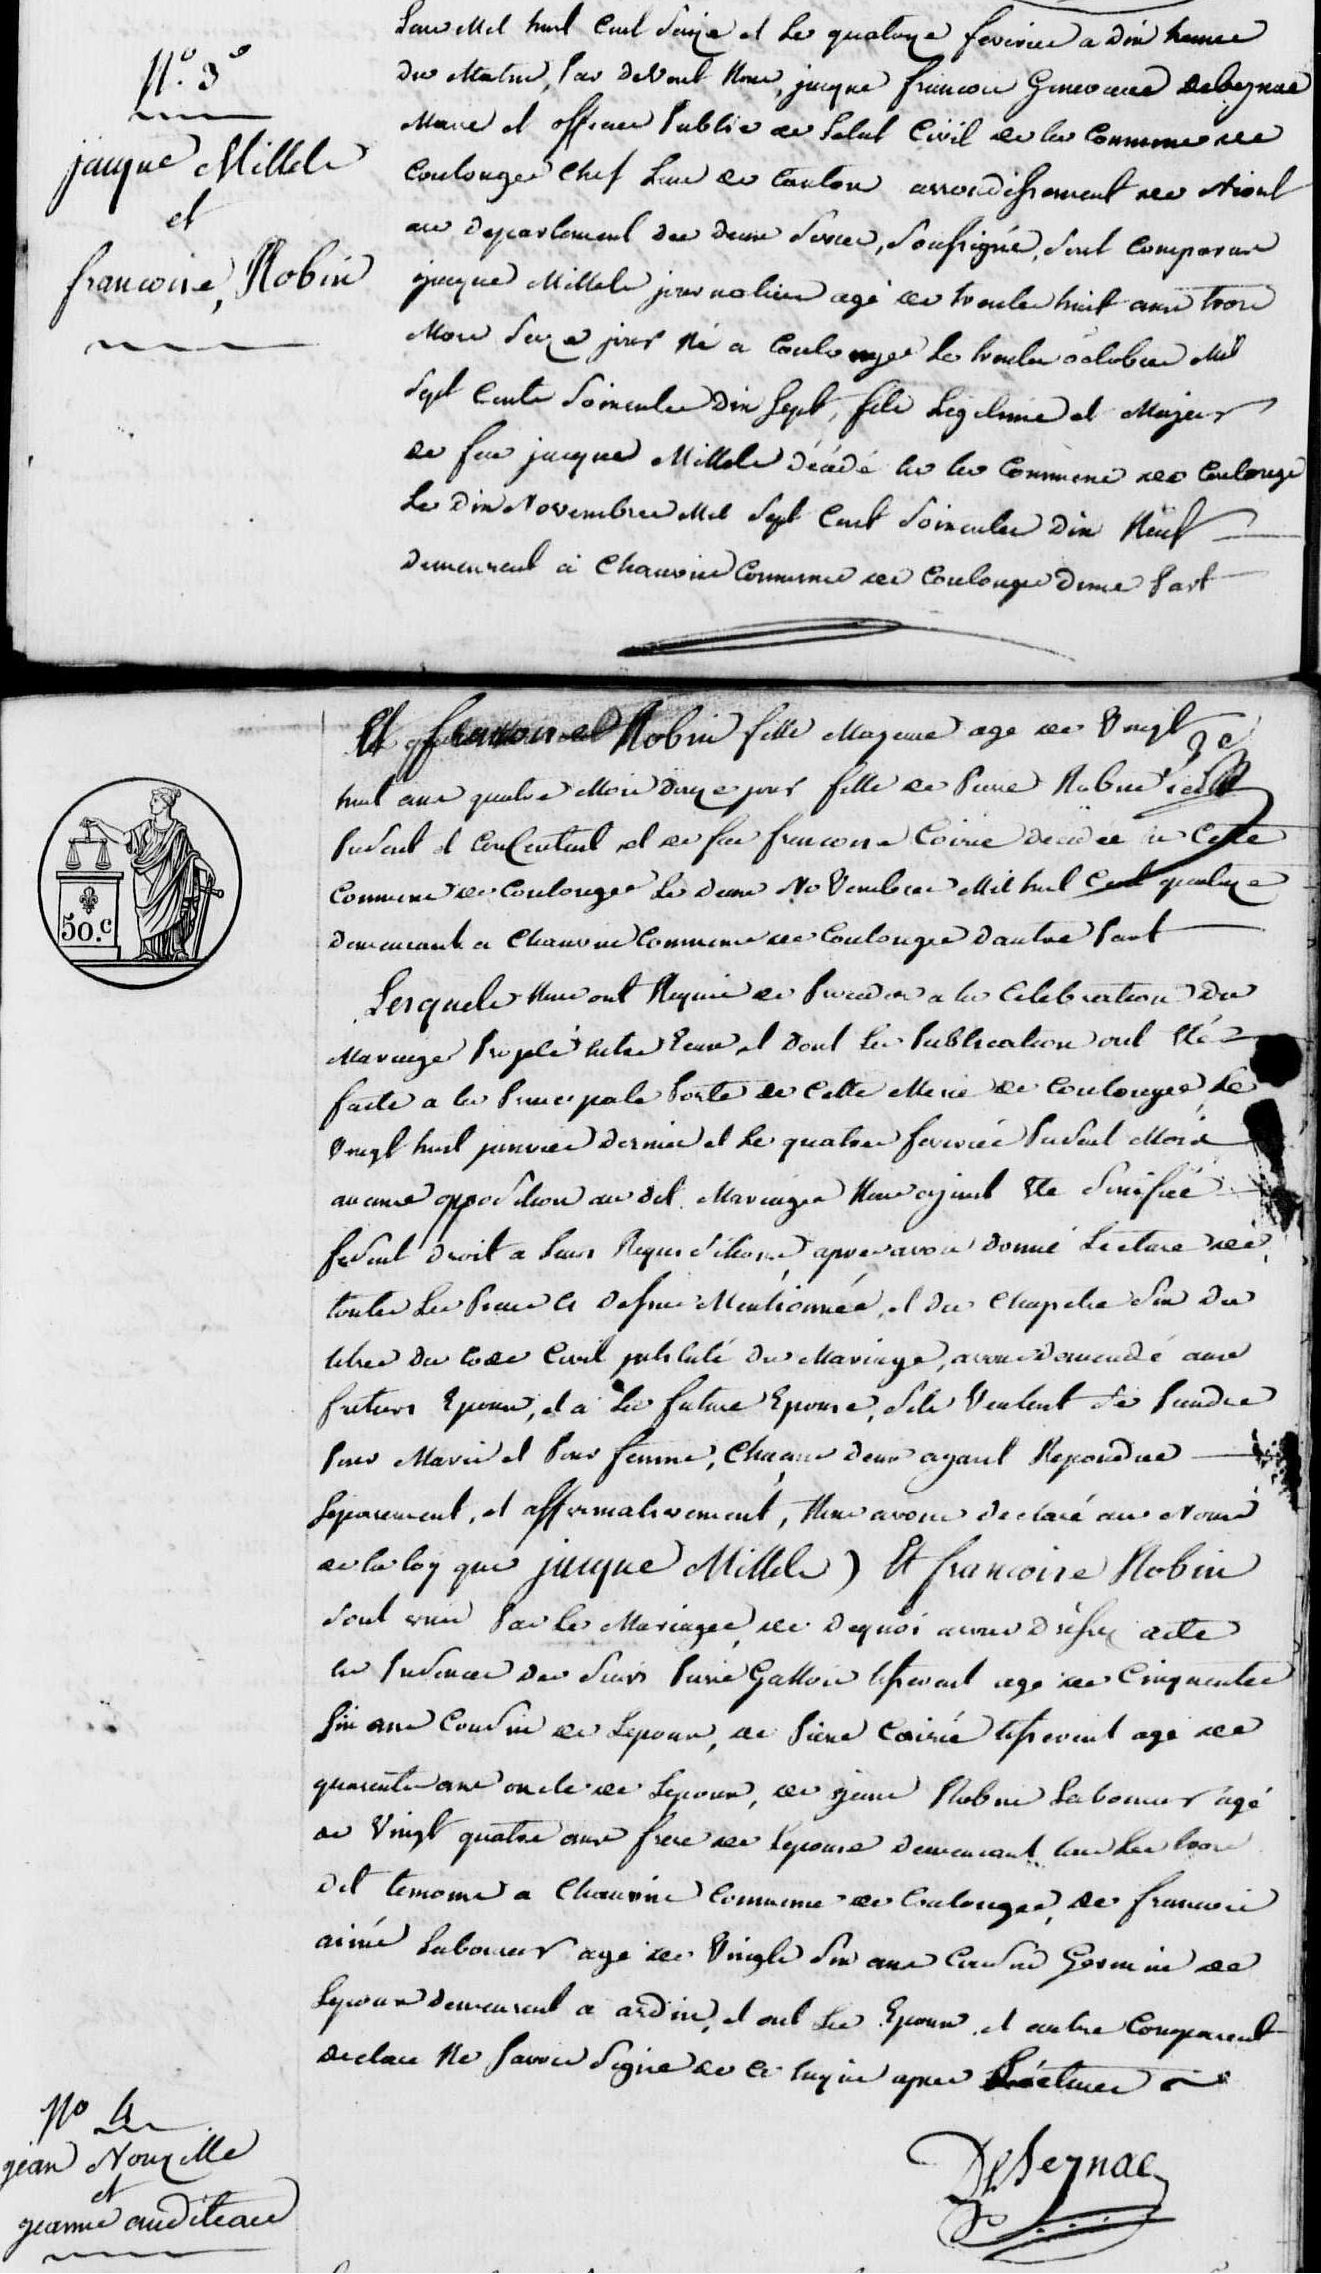 N.º 3e
jacque Millet
et
francoise Robin
Lan Mil huit Cent Seize et le quatorze fevrier a dix heure
du Matin, Par devant Nous, jacque francois Debeynac
Maire et officier Public de Letat Civil de la Commune de
Coulonge Chef Lieu de Canton arrondissement de Niort
au departement des deux Sevres, Soussigné, Sont Comparus
jacque Millet journalier agé de trente huit ans trois
Mois Seize jour Né a Coulonges le trente octobre Mil
Sept Cents Soixente Dix Sept, fils Legitime et Majeur
de feu jacque Millet décédé en la Commune de Coulonge
Le Dix Novembre Mil Sept Cent Soixente Dix Neuf
Demeurent à Commune de Coulonge Dune Part
Et francoise Robin fille Majeure age de Vingt
huit ans quatre Mois Douze jour fille de Pierre Robin
Present et Consentent et de feu francoise Coirié Décédée en Cette
Commune de Coulonges Le Deux Novembre Mil huit Cent quatorze
Demeurant a Commune de Coulonges d'autre Part
50.c
Lesquels Nous ont Requis de Proceder a la Celebration du
Mariage Projeté Entre Eux et dont les Publication ont Eté
faite a la Principale Porte de Cette Merie de Coulonges, Le
Vingt huit janvier Dernier et Le quatre fevrier Present Mois
aucune opposition au dit Mariage Nous ayant Ete Sinifiée
fesent Droit a Leurs Requisitions, apres avoir Donné Lecture de
toutes Les Piece Ci Desus Mentionnée, et Du Chapitre Six Du
titre Du Code Civil intitulé Du Mariage, avons Demendé aux
futurs Epoux, et a La future Epouse, Sils Veulent Se Prendre
Pour Mari et Pour femme, Chacun Deux ayant Repondue
Separement, et affirmativement, Nous avons declaré au Nom
de la loy que jacque Millet Et francoise Robin
Sont unis Par le Mariage, de dequoi avons Dressez acte
en Presence Des Sieurs Pierre Gallois age de Cinquente
Six ans Cousin de Lepoux, de Piere Coirié agé de
quarente ans oncle de Lepoux, de jean Robin Laboureur agé
de Vingt quatre ans frere de Lepouse Demeurant tous Les trois
Dit temoins a Commune de Coulonges, de francois
aimé Laboureur agé de Vingt Six ans Cousin Germain de
Lepoux Demeurent a ardin, et ont Les Epoux et autre Comparent
Declare Ne Savoir Signé de Ce Enquis apres Lecture
Debeynac
No 4
jean Nouzille
et
jeanne auditeau